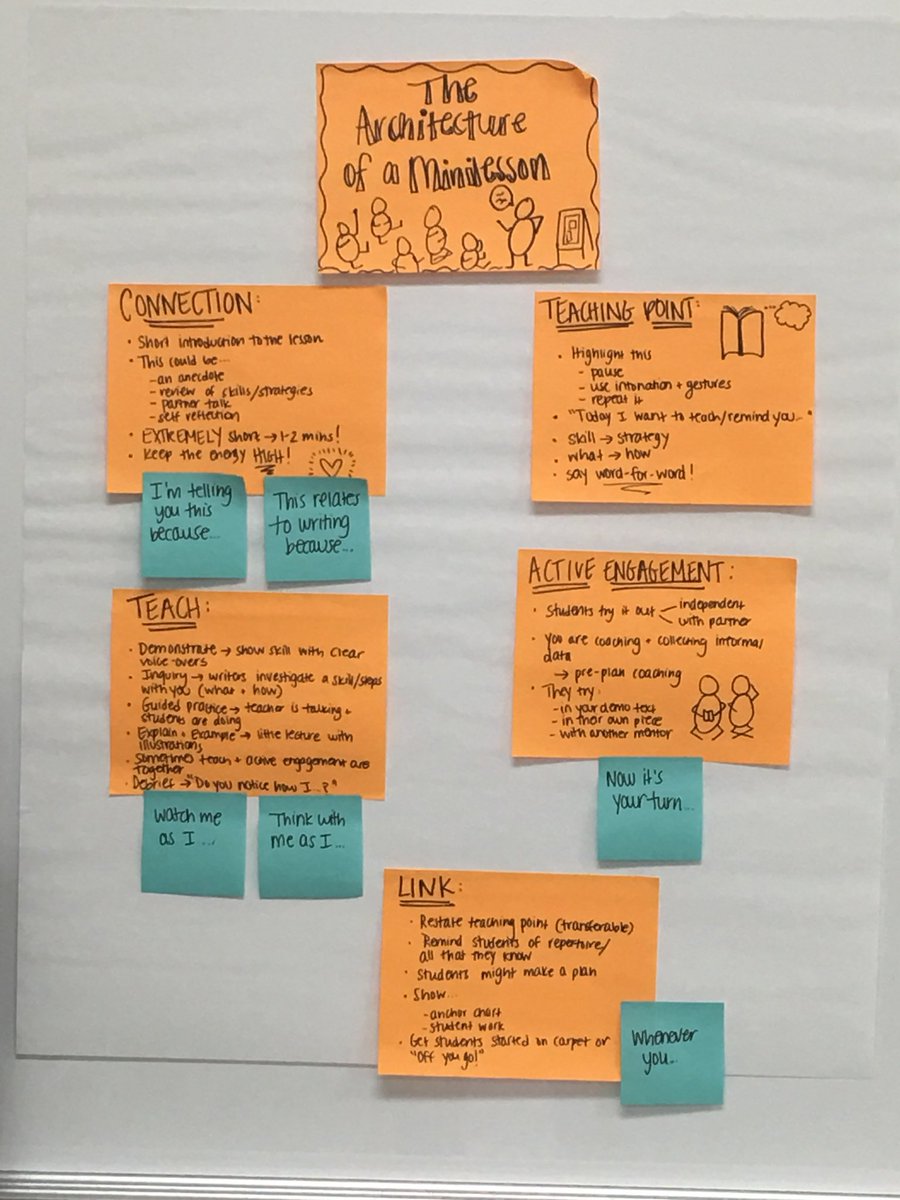 The
Architecture
of a Minilesson
CONNECTION:
• Short introduction to the lesson
• This could be...
- an anecdote
- review of skills/strategies
- partner talk
- self reflection
• EXTREMELY short → 1-2 mins!
• Keep the energy HIGH!
I'm telling
you this
because...
This relates
to writing
because...
TEACHING POINT:
• Highlight this
- pause
- use intonation + gestures
- repeat it
• "Today I want to teach/remind you..."
• skill → strategy
• what → how
• say word-for-word!
TEACH:
• Demonstrate → show skill with clear
voice-overs
• Inquiry → writers investigate a skill/steps
with you (what + how)
• Guided practice → teacher is talking +
students are doing
• Explain + Example → little lecture with
illustrations
• Sometimes teach + active engagement are
together
• Debrief → "Do you notice how I...?"
Watch me
as I...
Think with
me as I...
ACTIVE ENGAGEMENT:
• Students try it out < independent
with partner
• You are coaching + collecting informal
data
→ pre-plan coaching
• They try:
- in your demo text
- in their own piece
- with another mentor
Now it's
your turn...
LINK:
• Restate teaching point (transferable)
• Remind students of repertoire/
all that they know
• Students might make a plan
• Show...
- anchor chart
- student work
• Get students started on carpet or
"Off you go!"
Whenever
you...